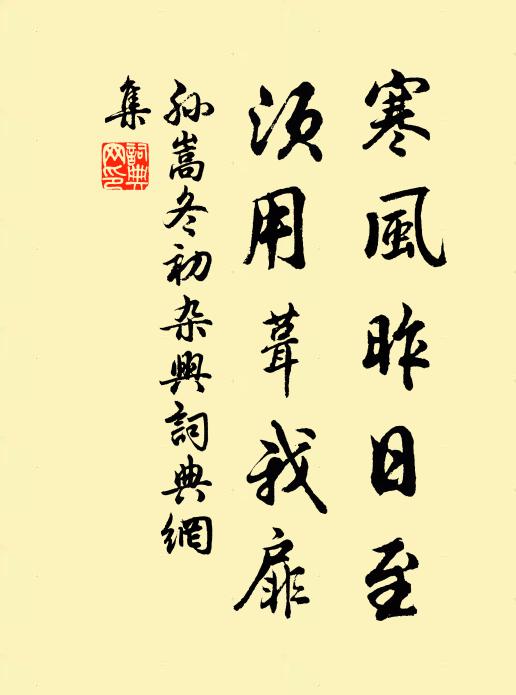 寒風昨日至
須用葺我扉
孫嵩冬初杂興詞典網
集
詞典
网印